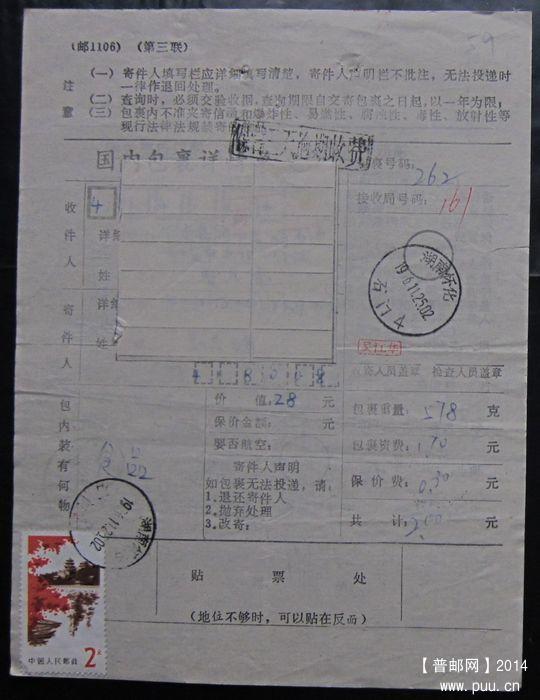 (邮1106)(第三联)
59
注意
(一)寄件人填写栏应详细填写清楚,寄件人声明栏不批注,无法投递时
一律作退回处理。
(二)查询时,必须交验收据,查询期限自交寄包裹之日起,以一年为限;
(三)包裹内不准夹寄信函和爆炸性、易燃性、腐蚀性、毒性、放射性等
现行法律法规禁寄
逾期收费
国内包裹详
裹号码: 262
接收局号码: 161
收件人
4
详
姓
寄件人
详
姓
湖南怀化
吴红华
收寄人员盖章 检查人员盖章
价 值:28 元
包裹重量: 578 克
保价金额: 元
要否航空:
包裹资费: 1.70 元
包内装有何物
食品
寄件人声明
如包裹无法投递,请:
1.退还寄件人
2.抛弃处理
3.改寄:
保价费: 0.30 元
共 计: 2.00 元
贴票处
(地位不够时,可以贴在反面)
中国人民邮政
2
【普邮网】2014
www.puu.cn